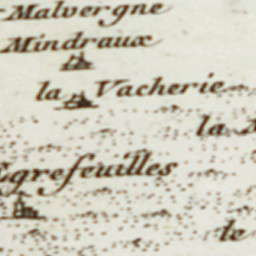 Malvergne
Mindraux
la Vacherie
la
Egrefeuilles
le